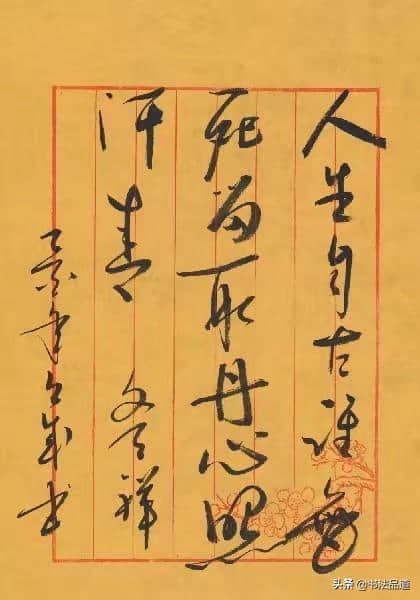 人生自古谁無
死留取丹心照
汗青 文天祥
年 书
头条 @书法品道